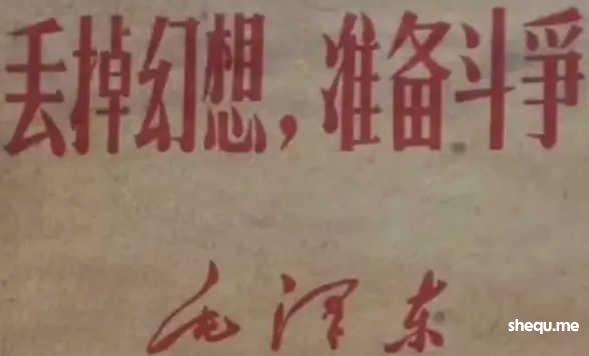 丢掉幻想，准备斗争
毛泽东
shequ.me